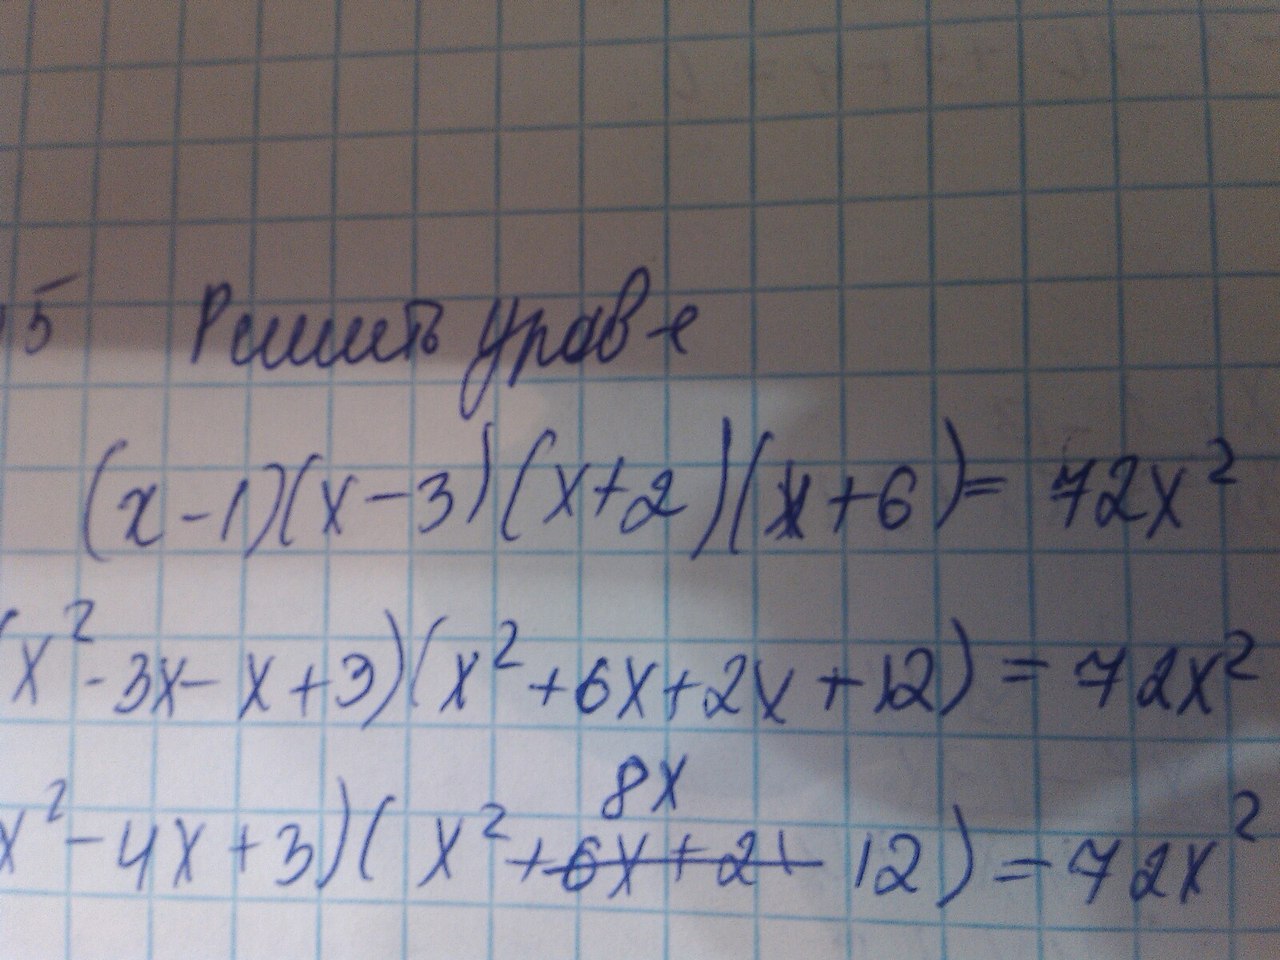 5 Решить ураве
(x-1)(x-3)(x+2)(x+6)= 72x²
(x²-3x-x+3)(x²+6x+2x+12)=72x²
8x
x²-4x+3)(x²+6x+2+12)=72x²